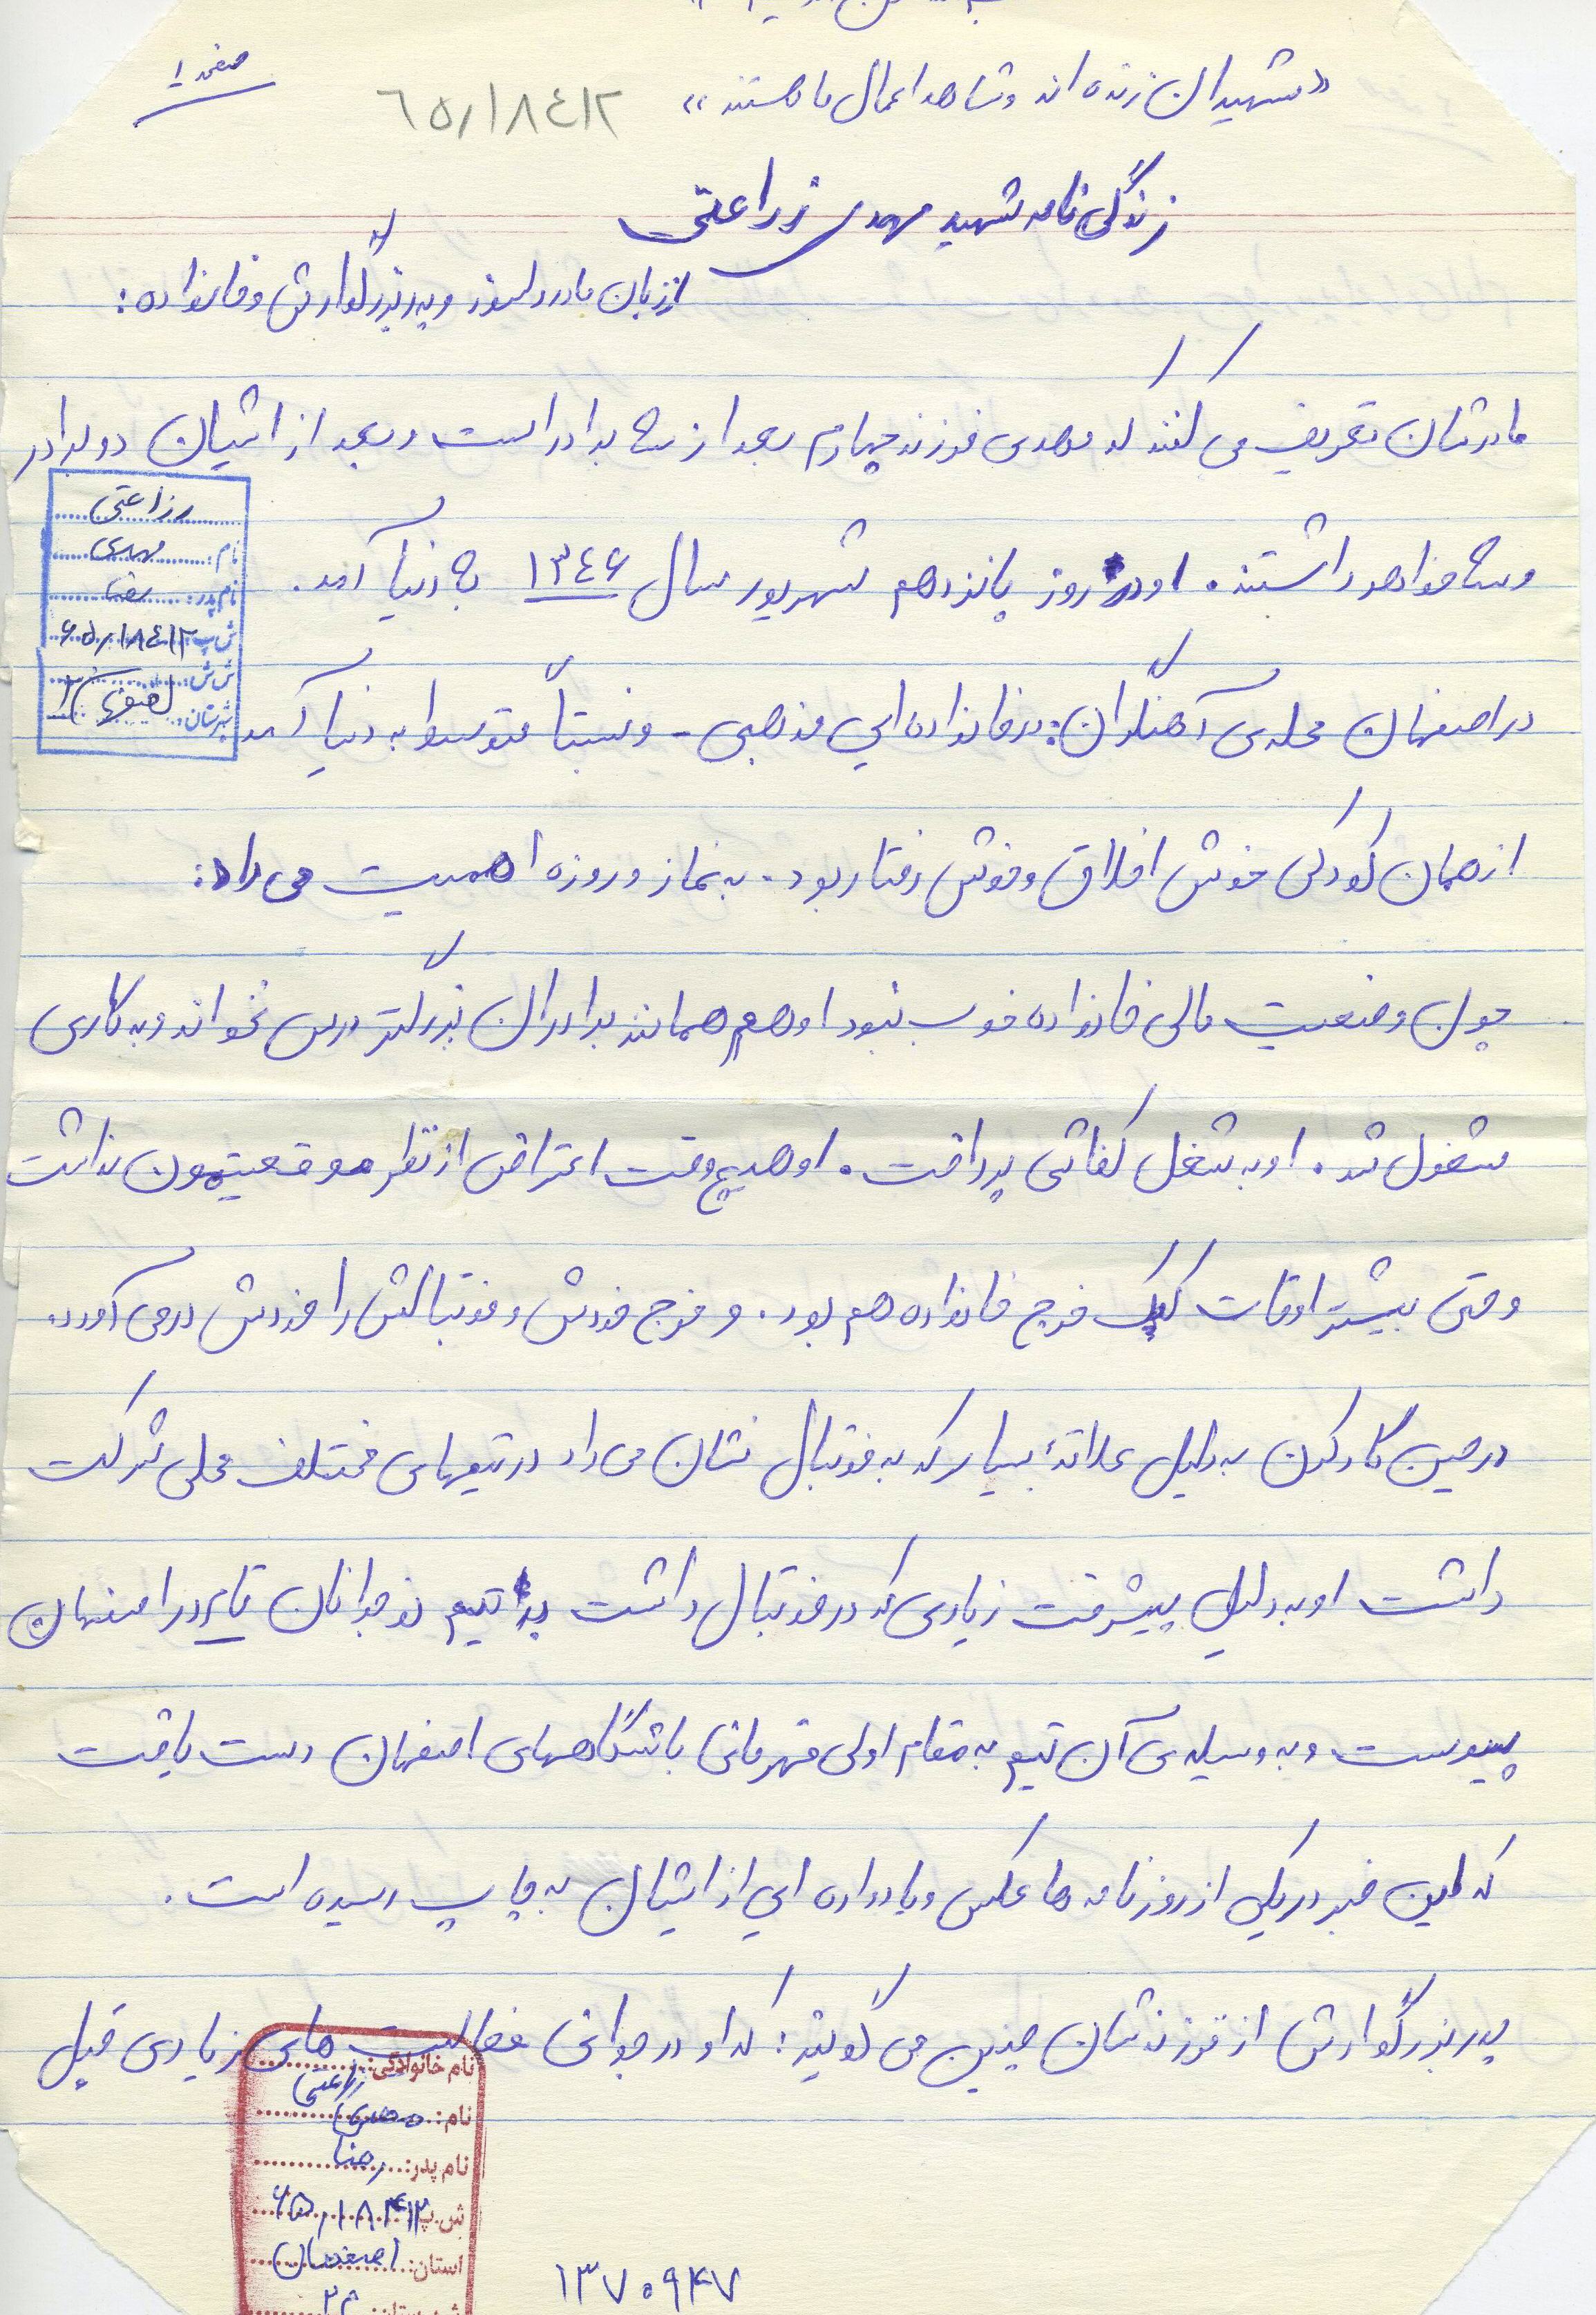 صفحه ۱
«شهیدان زنده اند و شاهد اعمال ما هستند»
۶۵/۱۸۴۱۲
زندگی نامه شهید مهدی زراعتی
از زبان مادر دلسوز و پدر بزرگوارش و خانواده:
مادرشان تعریف می کنند که مهدی فرزند چهارم بعد از سه برادر است و بعد از ایشان دو برادر
و سه خواهر داشتند. او در روز پانزدهم شهریور سال ۱۳۴۶ به دنیا آمد.
در اصفهان محله ی آهنگران: در خانواده ایی مذهبی - و نسبتاً متوسط به دنیا آمد
از همان کودکی خوش اخلاق و خوش رفتار بود. به نماز و روزه اهمیت می داد:
چون وضعیت مالی خانواده خوب نبود او هم همانند برادران بزرگتر درس نخواند و به کاری
مشغول شد. او به شغل کفاشی پرداخت. او هیچ وقت اعتراض از نظر موقعیتمون نداشت
و حتی بیشتر اوقات کمک خرج خانواده هم بود. و خرج خودش و فوتبالش را خودش درمی آورد.
در حین کار کردن به دلیل علاقهٔ بسیار که به فوتبال نشان می داد در تیمهای مختلف محلی شرکت
داشت او به دلیل پیشرفت زیادی که در فوتبال داشت به تیم نوجوانان در اصفهان
پیوست و به وسیله ی آن تیم به مقام اولی قهرمانی باشگاههای اصفهان دست یافت
که این خبر در یکی از روزنامه ها عکس و یادواره ایی از ایشان به چاپ رسیده است.
پدر بزرگوارش از فرزندشان چنین می گویند: که او در جوانی فعالیت های زیادی قبل
زراعتی
نام: مهدی
نام پدر: رضا
ش پ: ۶۵/۱۸۴۱۲
ش ش:
شهرستان: اصفهان
نام خانوادگی: زراعتی
نام: مهدی
نام پدر: رضا
ش پ: ۶۵/۱۸۴۱۲
استان: اصفهان
۱۳۷۰۹۴۷